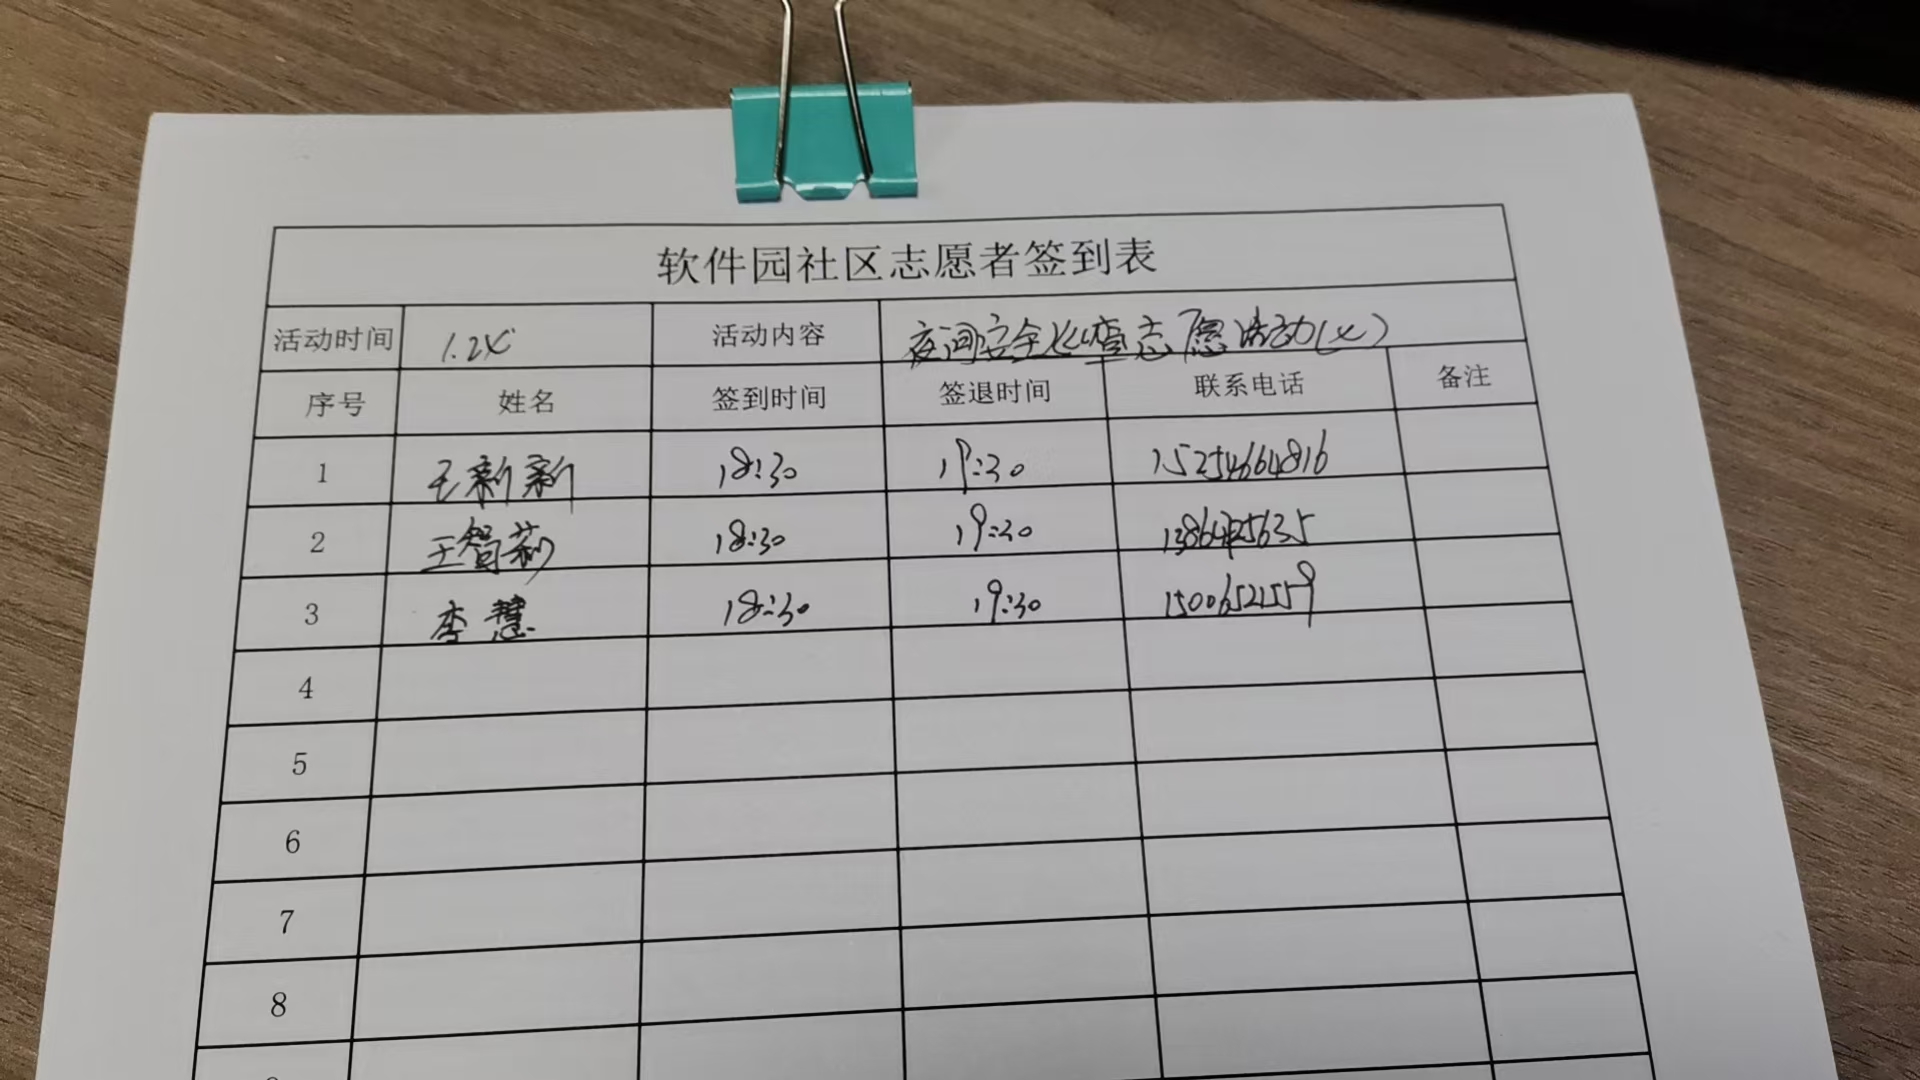 软件园社区志愿者签到表
活动时间 1.24 活动内容 夜间安全巡查志愿活动
序号 姓名 签到时间 签退时间 联系电话 备注
1 王新新 18:30 19:30 15254664816
2 王智莉 18:30 19:30
3 李慧 18:30 19:30 15006521559
4
5
6
7
8